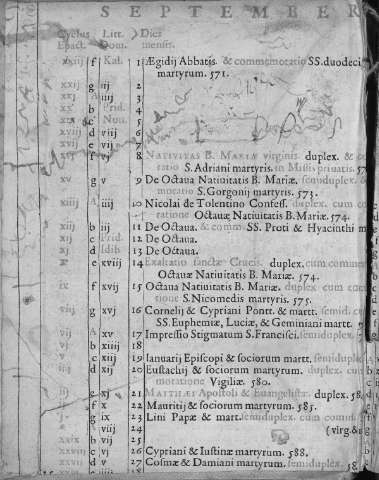 SEPTEMBER
Cyclus Litt. Dies
Epact. Dom. mensis.
xxiij f Kal. 1 Ægidij Abbatis. & commemoratio SS. duodeci
martyrum. 571.
xxij g iiij 2
xxj A iij 3
xx b Prid. 4
c Non. 5
xviij d viij 6
xvij e vij 7
f vj 8 NATIVITAS B. MARIÆ virginis. duplex. & co
S. Adriani martyris. in Missis priuatis. 57
xv g v 9 De Octaua Natiuitatis B. Mariæ. semiduplex. &
moratio S. Gorgonij martyris. 573.
xiiij A iiij 10 Nicolai de Tolentino Confess. duplex. cum co
ratione Octauæ Natiuitatis B. Mariæ. 574.
xiij b iij 11 De Octaua. & comm SS. Proti & Hyacinthi m
xij c Prid. 12 De Octaua.
xj d Idib 13 De Octaua.
x e xviij 14 Exaltatio sanctæ Crucis. duplex. cum comme
Octauæ Natiuitatis B. Mariæ. 574.
ix f xvij 15 Octaua Natiuitatis B. Mariæ. duplex cum com
tione S. Nicomedis martyris. 575.
viij g xvj 16 Cornelij & Cypriani Pontt. & martt. semid
SS. Euphemiæ, Luciæ, & Geminiani martt.
vij A xv 17 Impressio Stigmatum S. Francisci. semid
vj b xiiij 18
v c xiij 19 Ianuarij Episcopi & sociorum martt. semid
iiij d xij 20 Eustachij & sociorum martyrum. duplex. cu
moratione Vigiliæ. 580.
iij e xj 21 MATTHÆI Apostoli & Euangelistæ. duplex.
ij f x 22 Mauritij & sociorum martyrum. 585.
g ix 23 Lini Papæ & mart. semiduplex. cum comm
viij 24 (virg. &
xxix b vij 25
c vj 26 Cypriani & Iustinæ martyrum. 588.
xxvij d v 27 Cosmæ & Damiani martyrum. semiduplex. 58